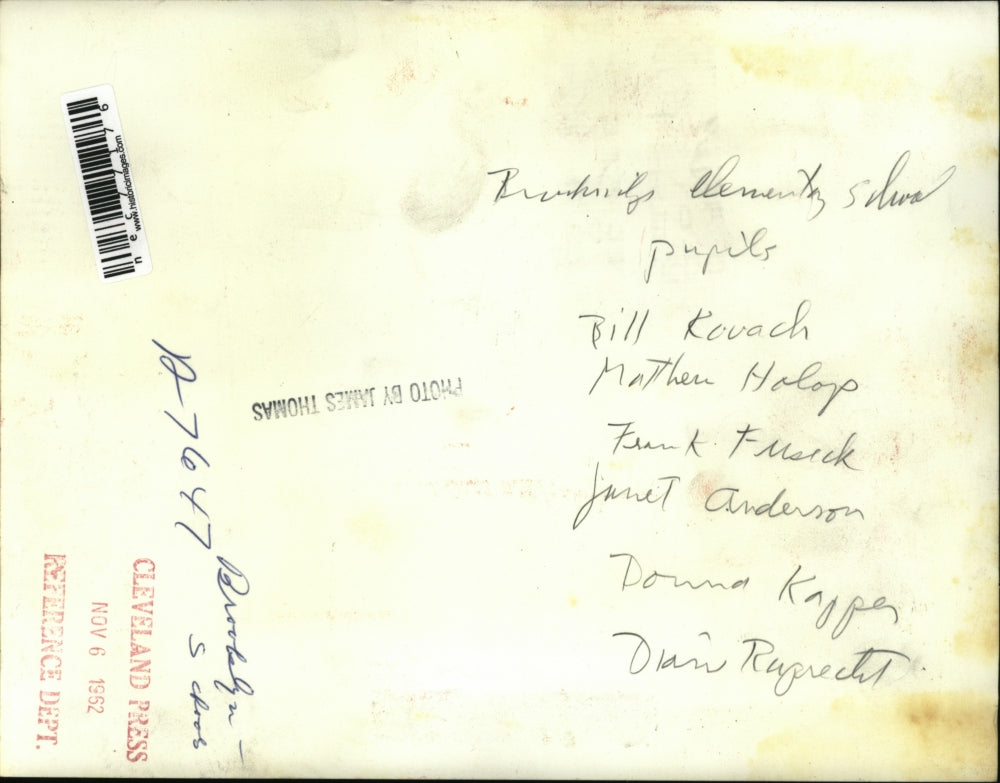 Brookridge Elementary School
pupils
Bill Kovach
Matthew Holop
Frank Fusick
Janet Anderson
Donna Kapper
Dian Ruprecht
PHOTO BY JAMES THOMAS
A-7647
Brooklyn -
Schools
CLEVELAND PRESS
NOV 6 1962
REFERENCE DEPT.
www.historicimages.com